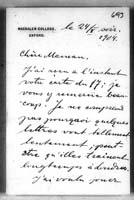 643
MAGDALEN COLLEGE,
OXFORD.
le 24/5 soir.
1904.
Chère Maman,
J'ai reçu à l'instant
votre carte du 17. je
vous y remercie beau-
coup. Je ne comprend
pas pourquoi quelques
lettres vont tellement
lentement, peut
être qu'elles traînent
longtemps à Londres.
J'ai voulu jouer